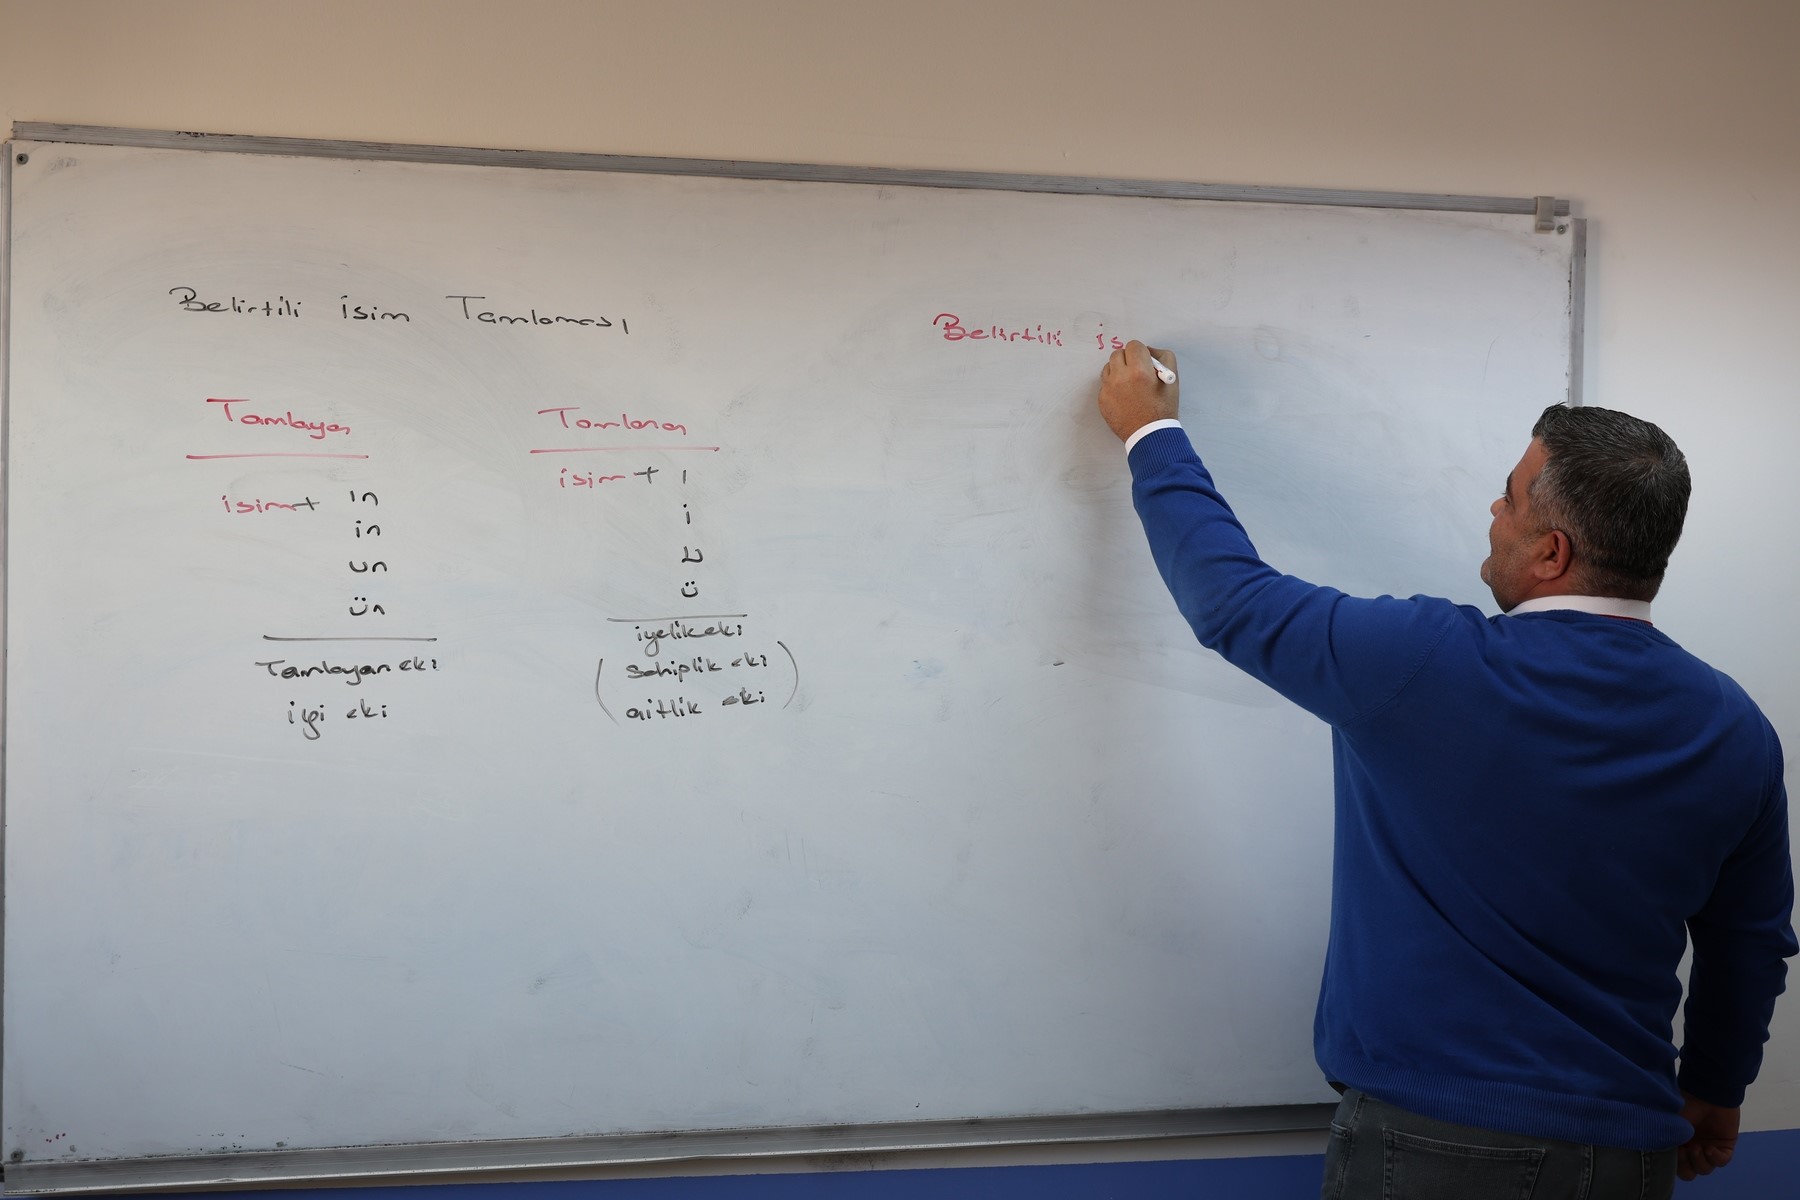 Belirtili isim Tamlaması
Tamlayan
isim+ ın
in
un
ün
Tamlayan eki
ilgi eki
Tamlanan
isim+ ı
i
u
ü
iyelik eki
(sahiplik eki
aitlik eki)
Belirtili is